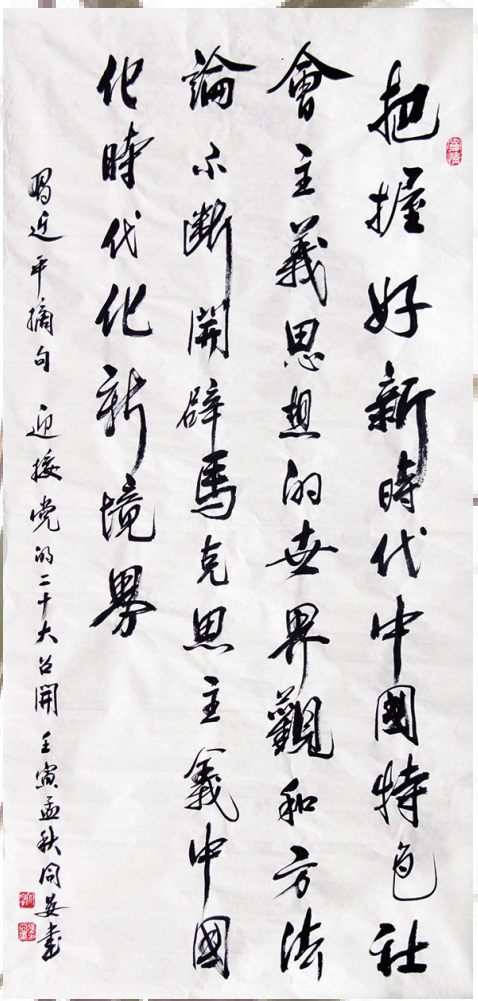 把握好新時代中國特色社
會主義思想的世界觀和方法
論不斷開辟馬克思主義中國
化時代化新境界
習近平摘句 迎接党的二十大召開 壬寅孟秋同安書